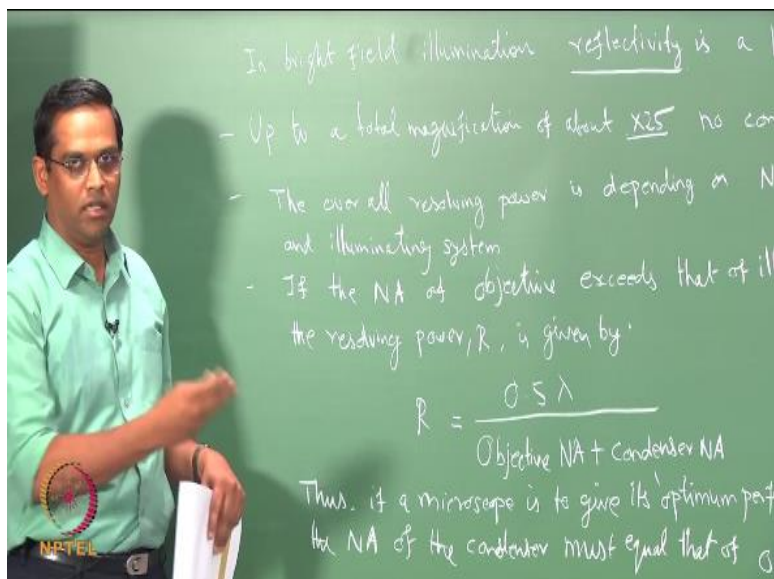 In bright field illumination reflectivity is a
- Up to a total magnification of about X25 no con
- The over all resolving power is depending on N
and illuminating system
- If the NA of objective exceeds that of ill
the resolving power, R, is given by.
R = 0.5 λ
Objective NA + Condenser NA
Thus. if a microscope is to give its optimum perf
the NA of the condenser must equal that of o
NPTEL